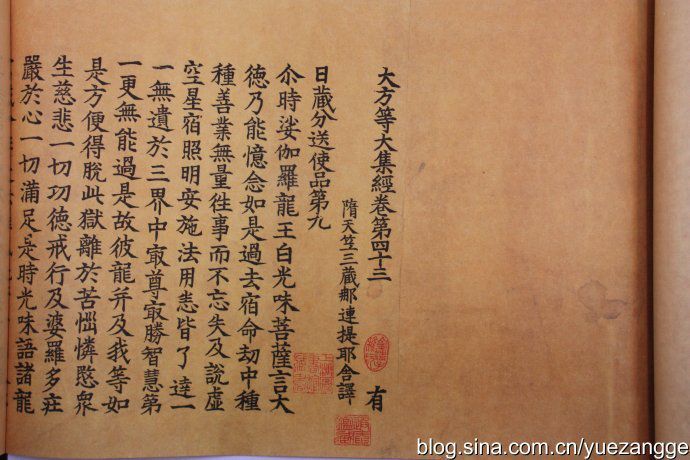 大方等大集經卷第四十三 有
隋天竺三蔵郍連提耶舍譯
日蔵分送使品第九
尒時娑伽羅龍王白光味菩薩言大
徳乃能憶念如是過去宿命劫中種
種善業無量往事而不忘失及說虛
空星宿照明安施法用悉皆了達一
一無遺於三界中㝡尊㝡勝智慧第
一更無能過是故彼龍并及我等如
是方便得脫此獄離於苦惱憐愍衆
生慈悲一切功徳戒行及婆羅多疰
嚴於心一切滿足是時光味語諸龍
blog.sina.com.cn/yuezangge